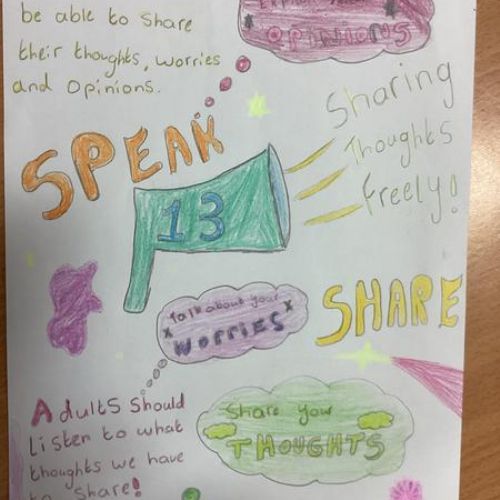 be able to share
their thoughts, worries
and opinions.
OPINIONS
SPEAK
Sharing
Thoughts
freely!
13
Talk about your
WORRIES
SHARE
Adults should
listen to what
thoughts we have
to share!
Share your
THOUGHTS